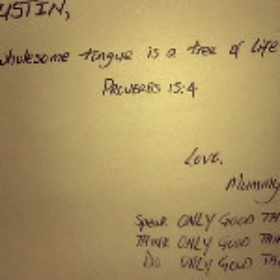 USTIN,
wholesome tongue is a tree of life
PROVERBS 15:4
Love,
Mummy
SPEAK ONLY GOOD TH
THINK ONLY GOOD THIN
DO ONLY GOOD TH